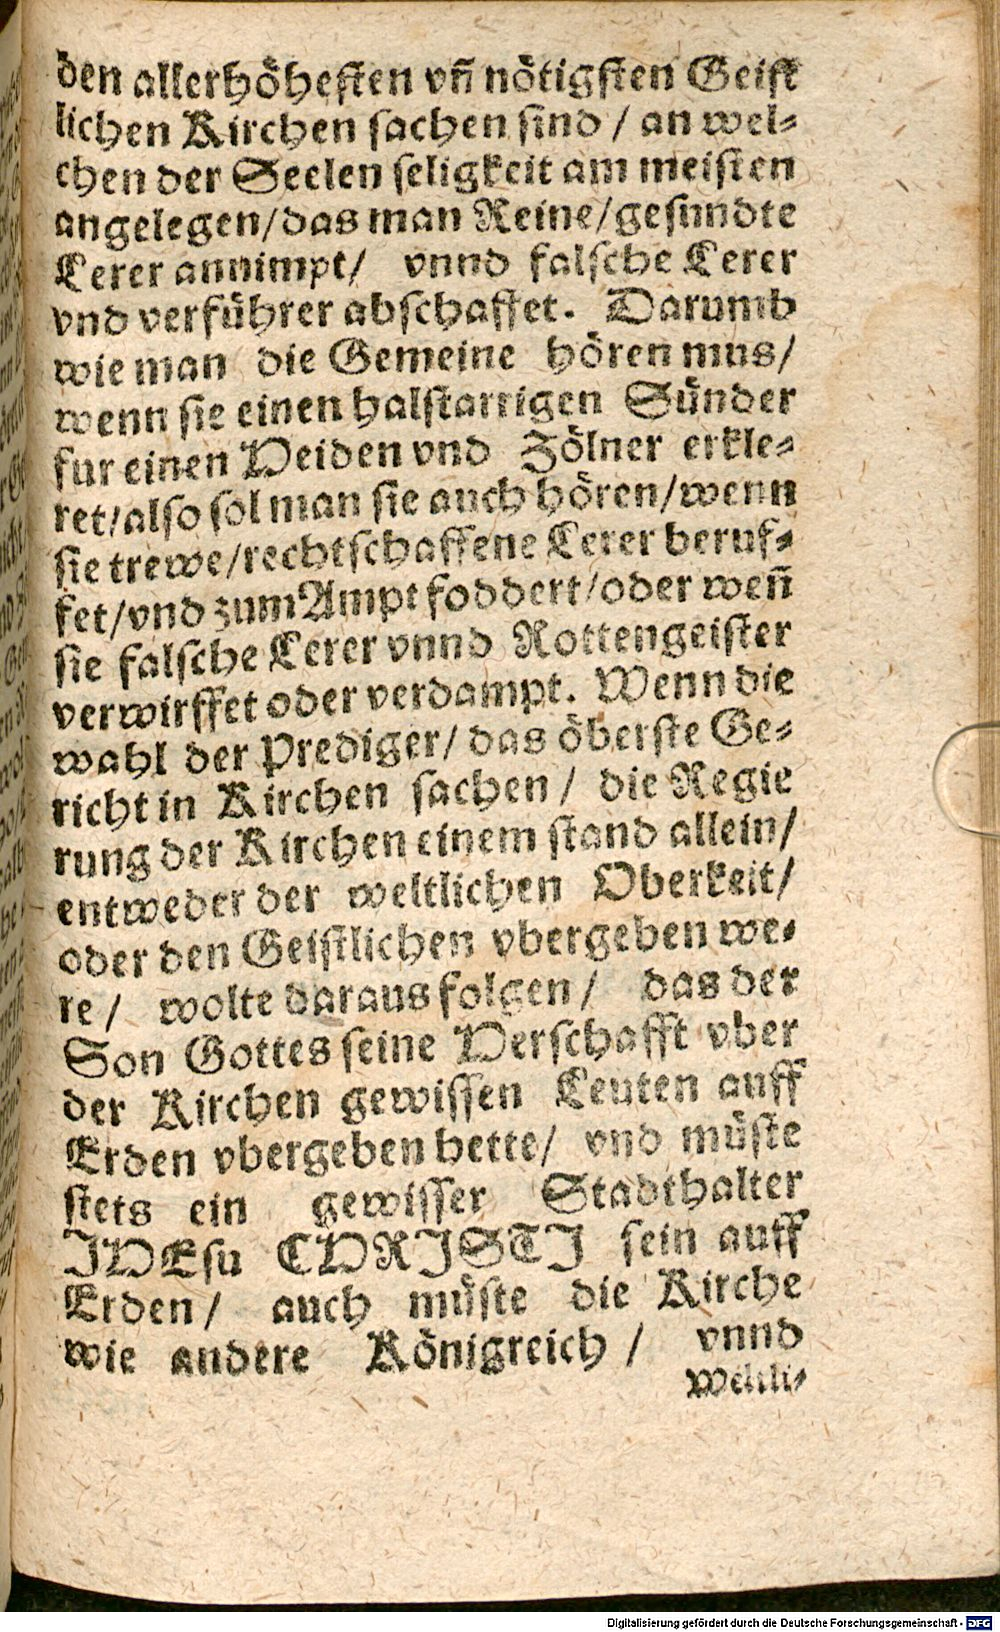 den allerhöhesten vñ nötigsten Geist
lichen Kirchen sachen sind / an wel-
chen der Seelen seligkeit am meisten
angelegen/das man Reine/gesundte
Lerer annimpt/ vnnd falsche Lerer
vnd verführer abschaffet. Darumb
wie man die Gemeine hören mus/
wenn sie einen halstarrigen Sünder
fur einen Heiden vnd Zölner erkle-
ret/also sol man sie auch hören/wenn
sie trewe/rechtschaffene Lerer beruf-
fet/vnd zum Ampt foddert/oder weñ
sie falsche Lerer vnnd Rottengeister
verwirffet oder verdampt. Wenn die
wahl der Prediger/ das öberste Ge-
richt in Kirchen sachen / die Regie
rung der Kirchen einem stand allein/
entweder der weltlichen Oberkeit/
oder den Geistlichen vbergeben we-
re / wolte daraus folgen / das der
Son Gottes seine Herschafft vber
der Kirchen gewissen Leuten auff
Erden vbergeben hette/ vnd müste
stets ein gewisser Stadthalter
JHEsu CHRJSTJ sein auff
Erden / auch müste die Kirche
wie andere Königreich / vnnd
Weltli-
Digitalisierung gefördert durch die Deutsche Forschungsgemeinschaft - DFG